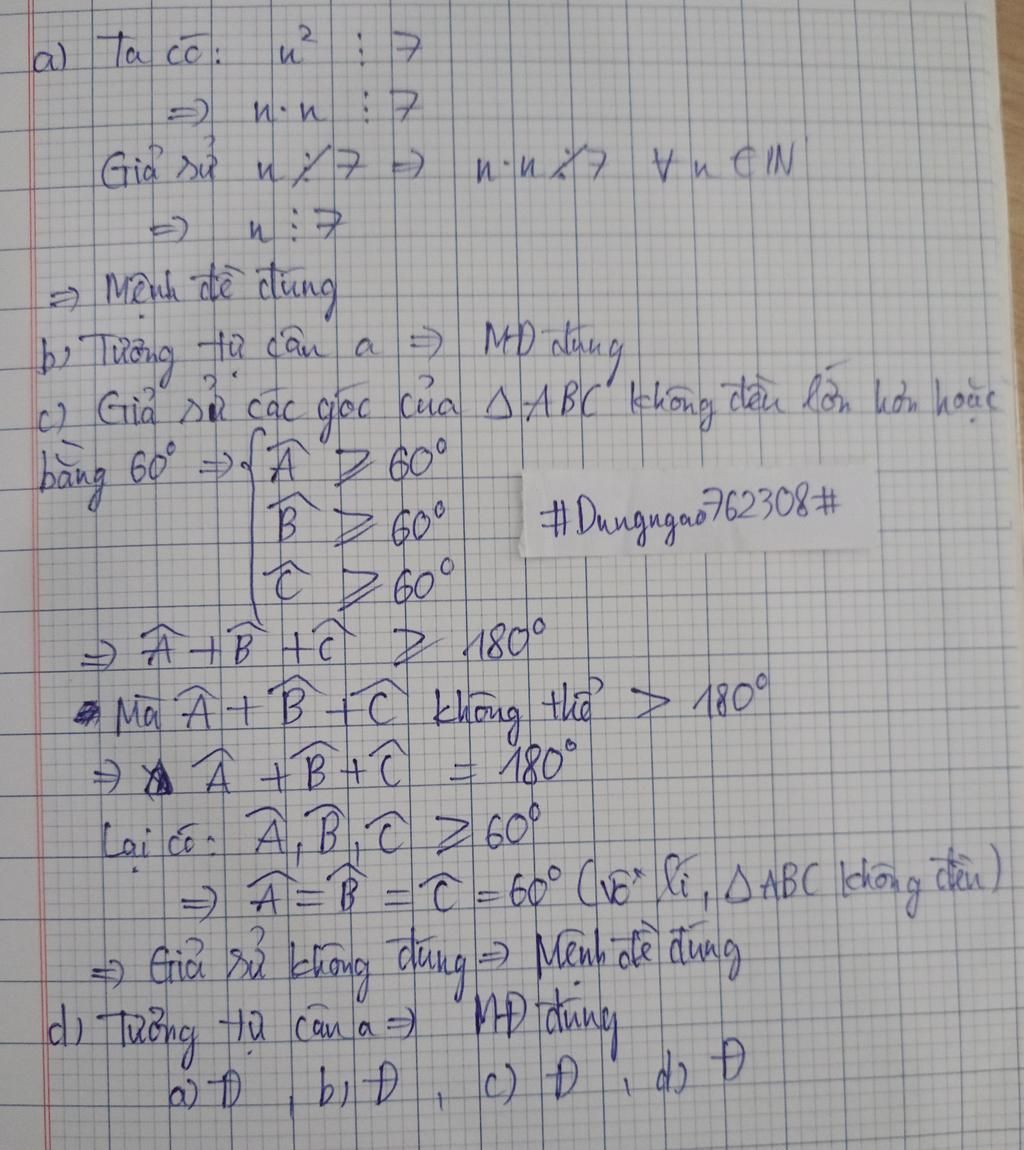 a) Ta có: n² ⋮ 7
⇒ n·n ⋮ 7
Giả sử n ⋮̸ 7 ⇒ n·n ⋮̸ 7 ∀ n ∈ ℕ
⇒ n ⋮ 7
⇒ Mệnh đề đúng
b) Tương tự câu a ⇒ MĐ đúng
c) Giả sử các góc của ΔABC không đều lớn hơn hoặc
bằng 60° ⇒ { Â ≥ 60°
B̂ ≥ 60°
#Dungngao762308#
Ĉ ≥ 60°
⇒ Â + B̂ + Ĉ ≥ 180°
Mà Â + B̂ + Ĉ không thể > 180°
⇒ Â + B̂ + Ĉ = 180°
Lại có: Â, B̂, Ĉ ≥ 60°
⇒ Â = B̂ = Ĉ = 60° (vô lí, ΔABC không đều)
⇒ Giả sử không đúng ⇒ Mệnh đề đúng
d) Tương tự câu a ⇒ MĐ đúng
a) Đ, b) Đ, c) Đ, d) Đ